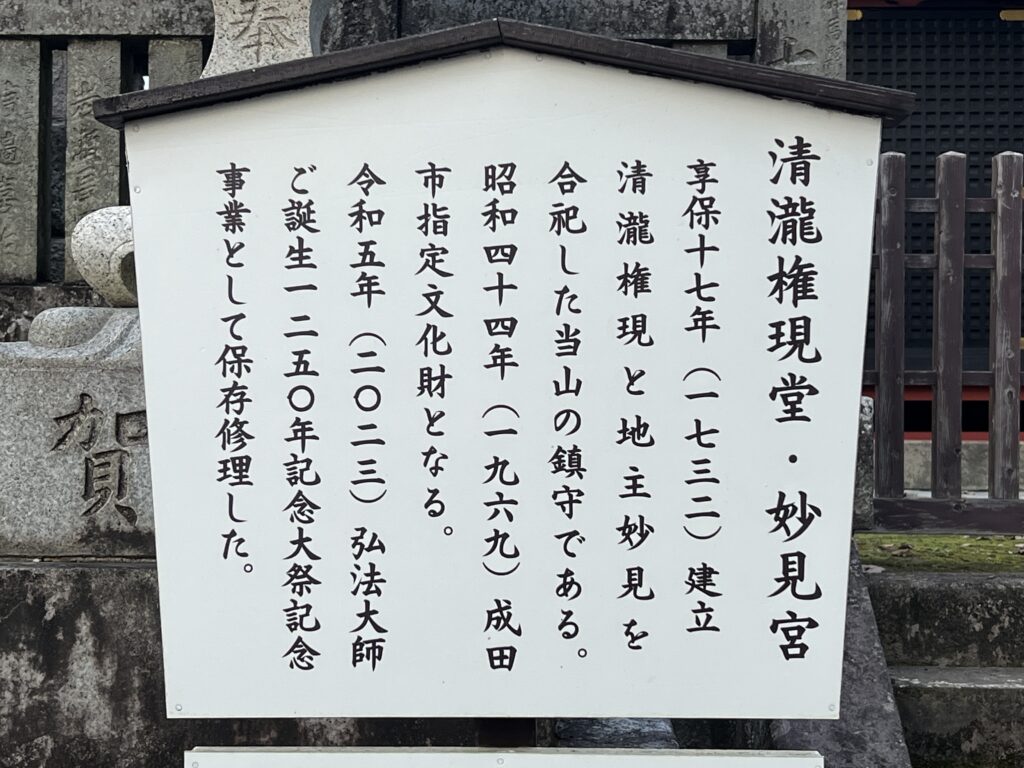 清瀧権現堂・妙見宮
享保十七年（一七三二）建立
清瀧権現と地主妙見を
合祀した当山の鎮守である。
昭和四十四年（一九六九）成田
市指定文化財となる。
令和五年（二〇二三）弘法大師
ご誕生一二五〇年記念大祭記念
事業として保存修理した。
奉
賀